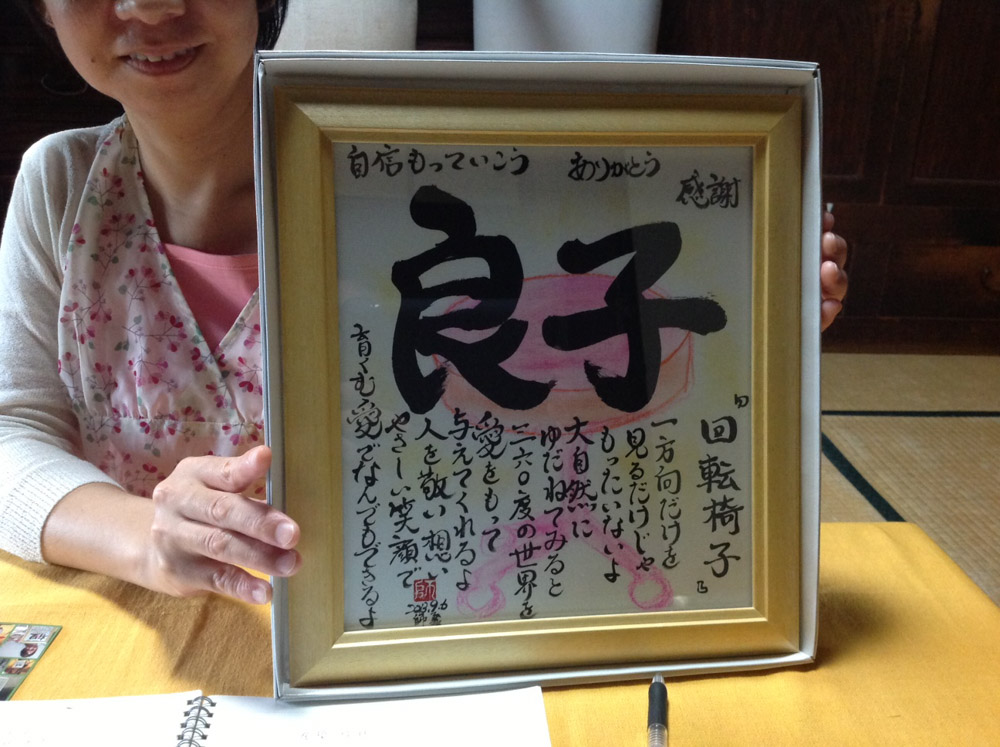 自信もっていこう
ありがとう
感謝
良子
「回転椅子」
一方向だけを
見るだけじゃ
もったいないよ
大自然に
ゆだねてみると
三六〇度の世界を
愛をもって
与えてくれるよ
人を敬い想い
やさしい笑顔で
育くむ愛でなんでもできるよ
師